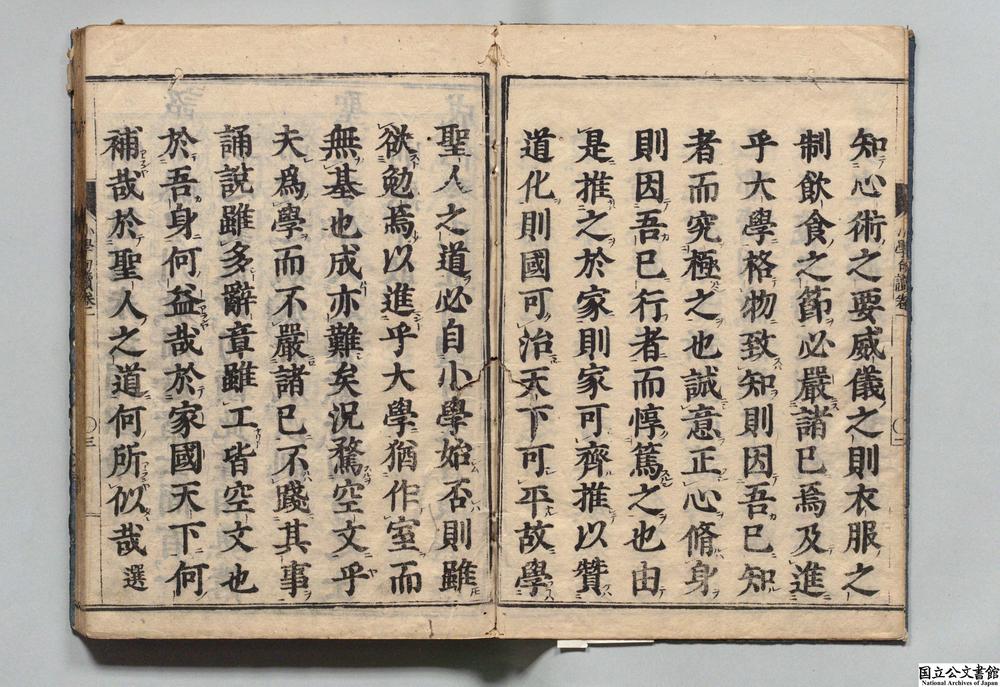 知心術之要威儀之則衣服之
制飲食之節必嚴諸已焉及進
乎大學格物致知則因吾已知
者而究極之也誠意正心脩身
則因吾已行者而惇篤之也由
是推之於家則家可齊推以贊
道化則國可治天下可平故學
聖人之道必自小學始否則雖
欲勉焉以進乎大學猶作室而
無基也成亦難矣況騖空文乎
夫爲學而不嚴諸已不踐其事
誦說雖多辭章雖工皆空文也
於吾身何益哉於家國天下何
補哉於聖人之道何所似哉 選
国立公文書館
National Archives of Japan